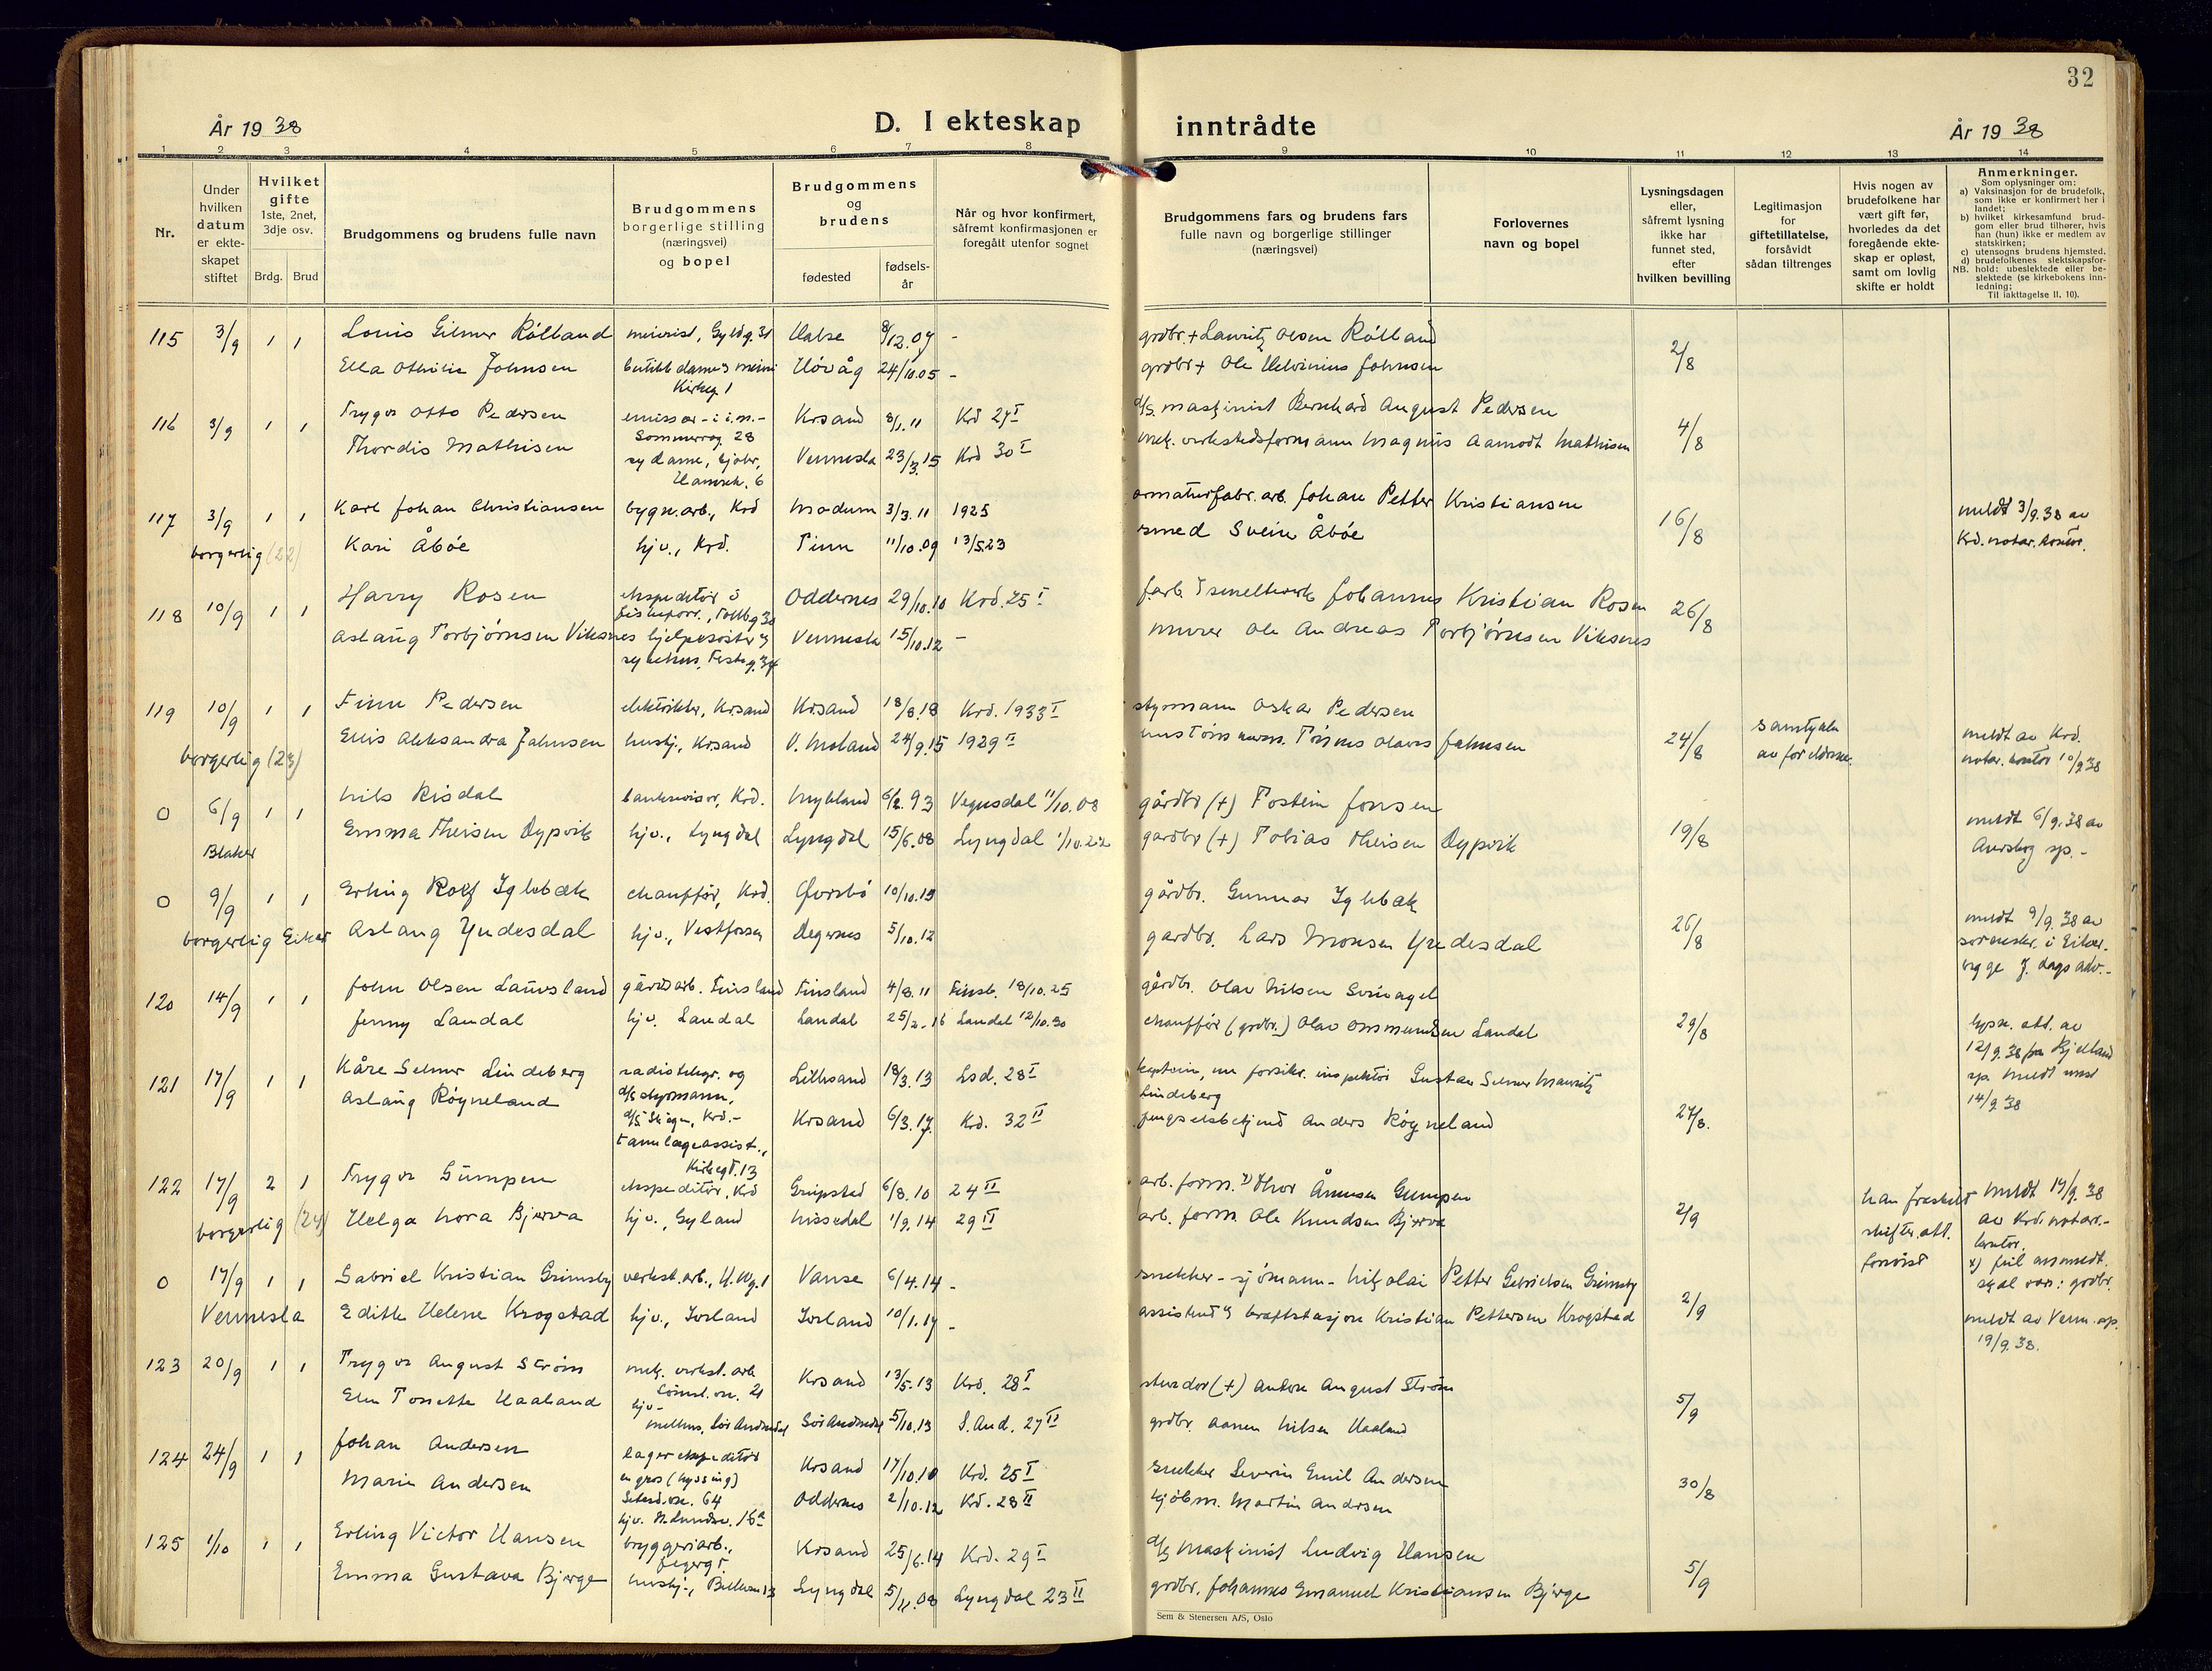 32
År 19 38
D. I ekteskap
inntrådte
År 19 38
1 2 3 4 5 6 7 8 9 10 11 12 13 14
Nr.
Under
hvilken
datum
er ekte-
skapet
stiftet
Hvilket
gifte
1ste, 2net,
3dje osv.
Brdg. Brud
Brudgommens og brudens fulle navn
Brudgommens
borgerlige stilling
(næringsvei)
og bopel
Brudgommens
og
brudens
fødested
fødsels-
år
Når og hvor konfirmert,
såfremt konfirmasjonen er
foregått utenfor sognet
Brudgommens fars og brudens fars
fulle navn og borgerlige stillinger
(næringsvei)
Forlovernes
navn og bopel
Lysningsdagen
eller,
såfremt lysning
ikke har
funnet sted,
efter
hvilken bevilling
Legitimasjon
for
giftetillatelse,
forsåvidt
sådan tiltrenges
Hvis nogen av
brudefolkene har
vært gift før,
hvorledes da det
foregående ekte-
skap er opløst,
samt om lovlig
skifte er holdt
Anmerkninger.
Som oplysninger om:
a) Vaksinasjon for de brudefolk,
som ikke er konfirmert her i
landet;
b) hvilket kirkesamfund brud-
gom eller brud tilhører, hvis
han (hun) ikke er medlem av
statskirken;
c) utensogns brudens hjemsted.
d) brudefolkenes slektskapsfor-
NB. hold: ubeslektede eller be-
slektede (se kirkebokens inn-
ledning;
Til iakttagelse II, 10).
115 3/9 1 1 Louis Gilmer Rölland meierist, Gyldg. 31 Halse 8/12.07 - grdbr. + Lauritz Olsen Rölland 2/8
Ella Othilie Johnsen Hövåg 24/10.05 - grdbr + Ole Johnsen
Kirkeg 1
116 3/9 1 1 Trygve Otto Pedersen emissær - i i.m. - Krsand 8/1.11 Krd 27 I d/s. maskinist Bernhard August Pedersen 4/8
Thordis Mathisen Vennesla 23/3.15 Krd 30 I mek. verkstedsformann Magnus Aamodt Mathisen
117 3/9 1 1 Karl Johan Christiansen bygn.arb., Krd Modum 3/3.11 1925 armaturfabr.arb. Johan Petter Kristiansen 16/8 meldt 3/9.38 av
borgerlig (22) Kari Åböe hjv., Krd. Tinn 11/10.09 13/5.23 smed Svein Åböe Krd. notar. kontor.
118 10/9 1 1 Harry Rosen ekspeditör i Oddernes 29/10.10 Krd. 25 I Johannes Kristian Rosen 26/8
Aslaug Torbjørnsen Viksnes Vennesla 15/10.12 - murer Ole Andreas Torbjørnsen Viksnes
119 10/9 1 1 Finn Pedersen elektriker, Krsand Krsand 18/8.18 Krd. 1933 I styrmann Oskar Pedersen 24/8 samtykke meldt av Krd.
borgerlig (23) Ellis Aleksandra Jahnsen hushj., Krsand V. Moland 24/9.15 1929 II Olaves Jahnsen av foreldrene. notar. kontor 10/9 38
0 6/9 1 1 Nils Risdal bankrevisor, Krd. Mykland 6/2.93 Vegusdal 11/10.08 gårdbr (+) Tostein Jonsen 19/8 meldt 6/9.38 av
Blaker Emma Theisen Dypvik hjv., Lyngdal Lyngdal 15/6.08 Lyngdal 1/10.22 gardbr (+) Tobias Theisen Dypvik Aurskog sp. -
0 9/9 1 1 Erling Rolf Iglebæk chauffør, Krd. 10/10.13 gårdbr. Gunnar Iglebæk 26/8 meldt 9/9.38 av
borgerlig Eiker Aslaug Yndesdal hjv., Vestfossen Degernes 5/10.12 gardbr. Lars Monsen Yndesdal sorenskr. i Eiker.
120 14/9 1 1 John Olsen Lauvsland gårdsarb. Finsland Finsland 4/8.11 Finsl. 18/10.25 gårdbr. Olav Nilsen 29/8
Jenny Laudal hjv. Laudal Laudal 25/2.16 Laudal 12/10.30 chauffør (grdbr.) Olav Ommundsen Laudal lysn. att. av
12/9.38 fra Bjelland
sp. meldt med
14/9 38
121 17/9 1 1 Kåre Selmer Lindeberg radiotelegr. og Lillesand 18/3.13 Lsd. 28 I kaptein, nu forsikr. inspektör Gustav Selmer Mauritz
Lindeberg
Aslaug Röyneland d/s styrmann, Krsand 6/3.17 Krd. 32 II fengselsbetjent Anders Röyneland 27/8.
tannlægeassist.,
Kirkegt. 13
122 17/9 2 1 Trygve Gumpen ekspeditör, Krd Greipstad 6/8.10 24 II arb. form. x) Thor Ånensen Gumpen 2/9 han fraskilt meldt 17/9 38
borgerlig (24) Helga Nora Bjerva hjv., Gyland Nissedal 1/9.14 29 II arb. form. Ole Knudsen Bjerva skifteatt. av Krd. notar.-
forevist kontor.
x) feil anmeldt.
skal være: grdbr.
0 17/9 1 1 Gabriel Kristian Grimsby verkst.arb., Vanse 6/4.14 - snekker - sjömann - Nikolai Petter Gabrielsen Grimsby 2/9
Vennesla Edith Helene Krogstad hjv., Iveland Iveland 10/1.17 - assistent v/ kraftstasjon Kristian Pettersen Krogstad meldt av Venn. sp.
19/9.38.
123 20/9 1 1 Trygve August Ström mek. verkst. arb Krsand 13/5.13 Krd. 28 I (+) Anton August Ström 5/9
Elen Tonette Haaland hjv- Sör Audnedal 5/10.13 S. Aud. 27 II grdbr. Aanen Nilsen Haaland
124 24/9 1 1 Johan Andersen lagerekspeditör Krsand 17/10.10 Krd. 25 I snekker Severin Emil Andersen 30/8
Marie Andersen en gros (Hyssing) Oddernes 2/10.12 Krd. 28 II kjöbm. Martin Andersen
125 1/10 1 1 Erling Victor Hansen bryggeriarb., Krsand 25/6.14 Krd. 29 I d/s maskinist Ludvig Hansen 5/9
Emma Gustava Bjerge hushj., Lyngdal 5/11.08 Lyngdal 23 II grdbr. Johannes Emanuel Kristiansen Bjerge
Sem & Stenersen A/S, Oslo